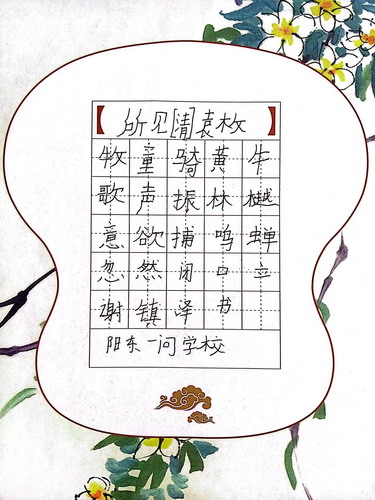 【所见[清]袁枚】
牧童骑黄牛
歌声振林樾
意欲捕鸣蝉
忽然闭口立
谢镇泽书
阳东一问学校